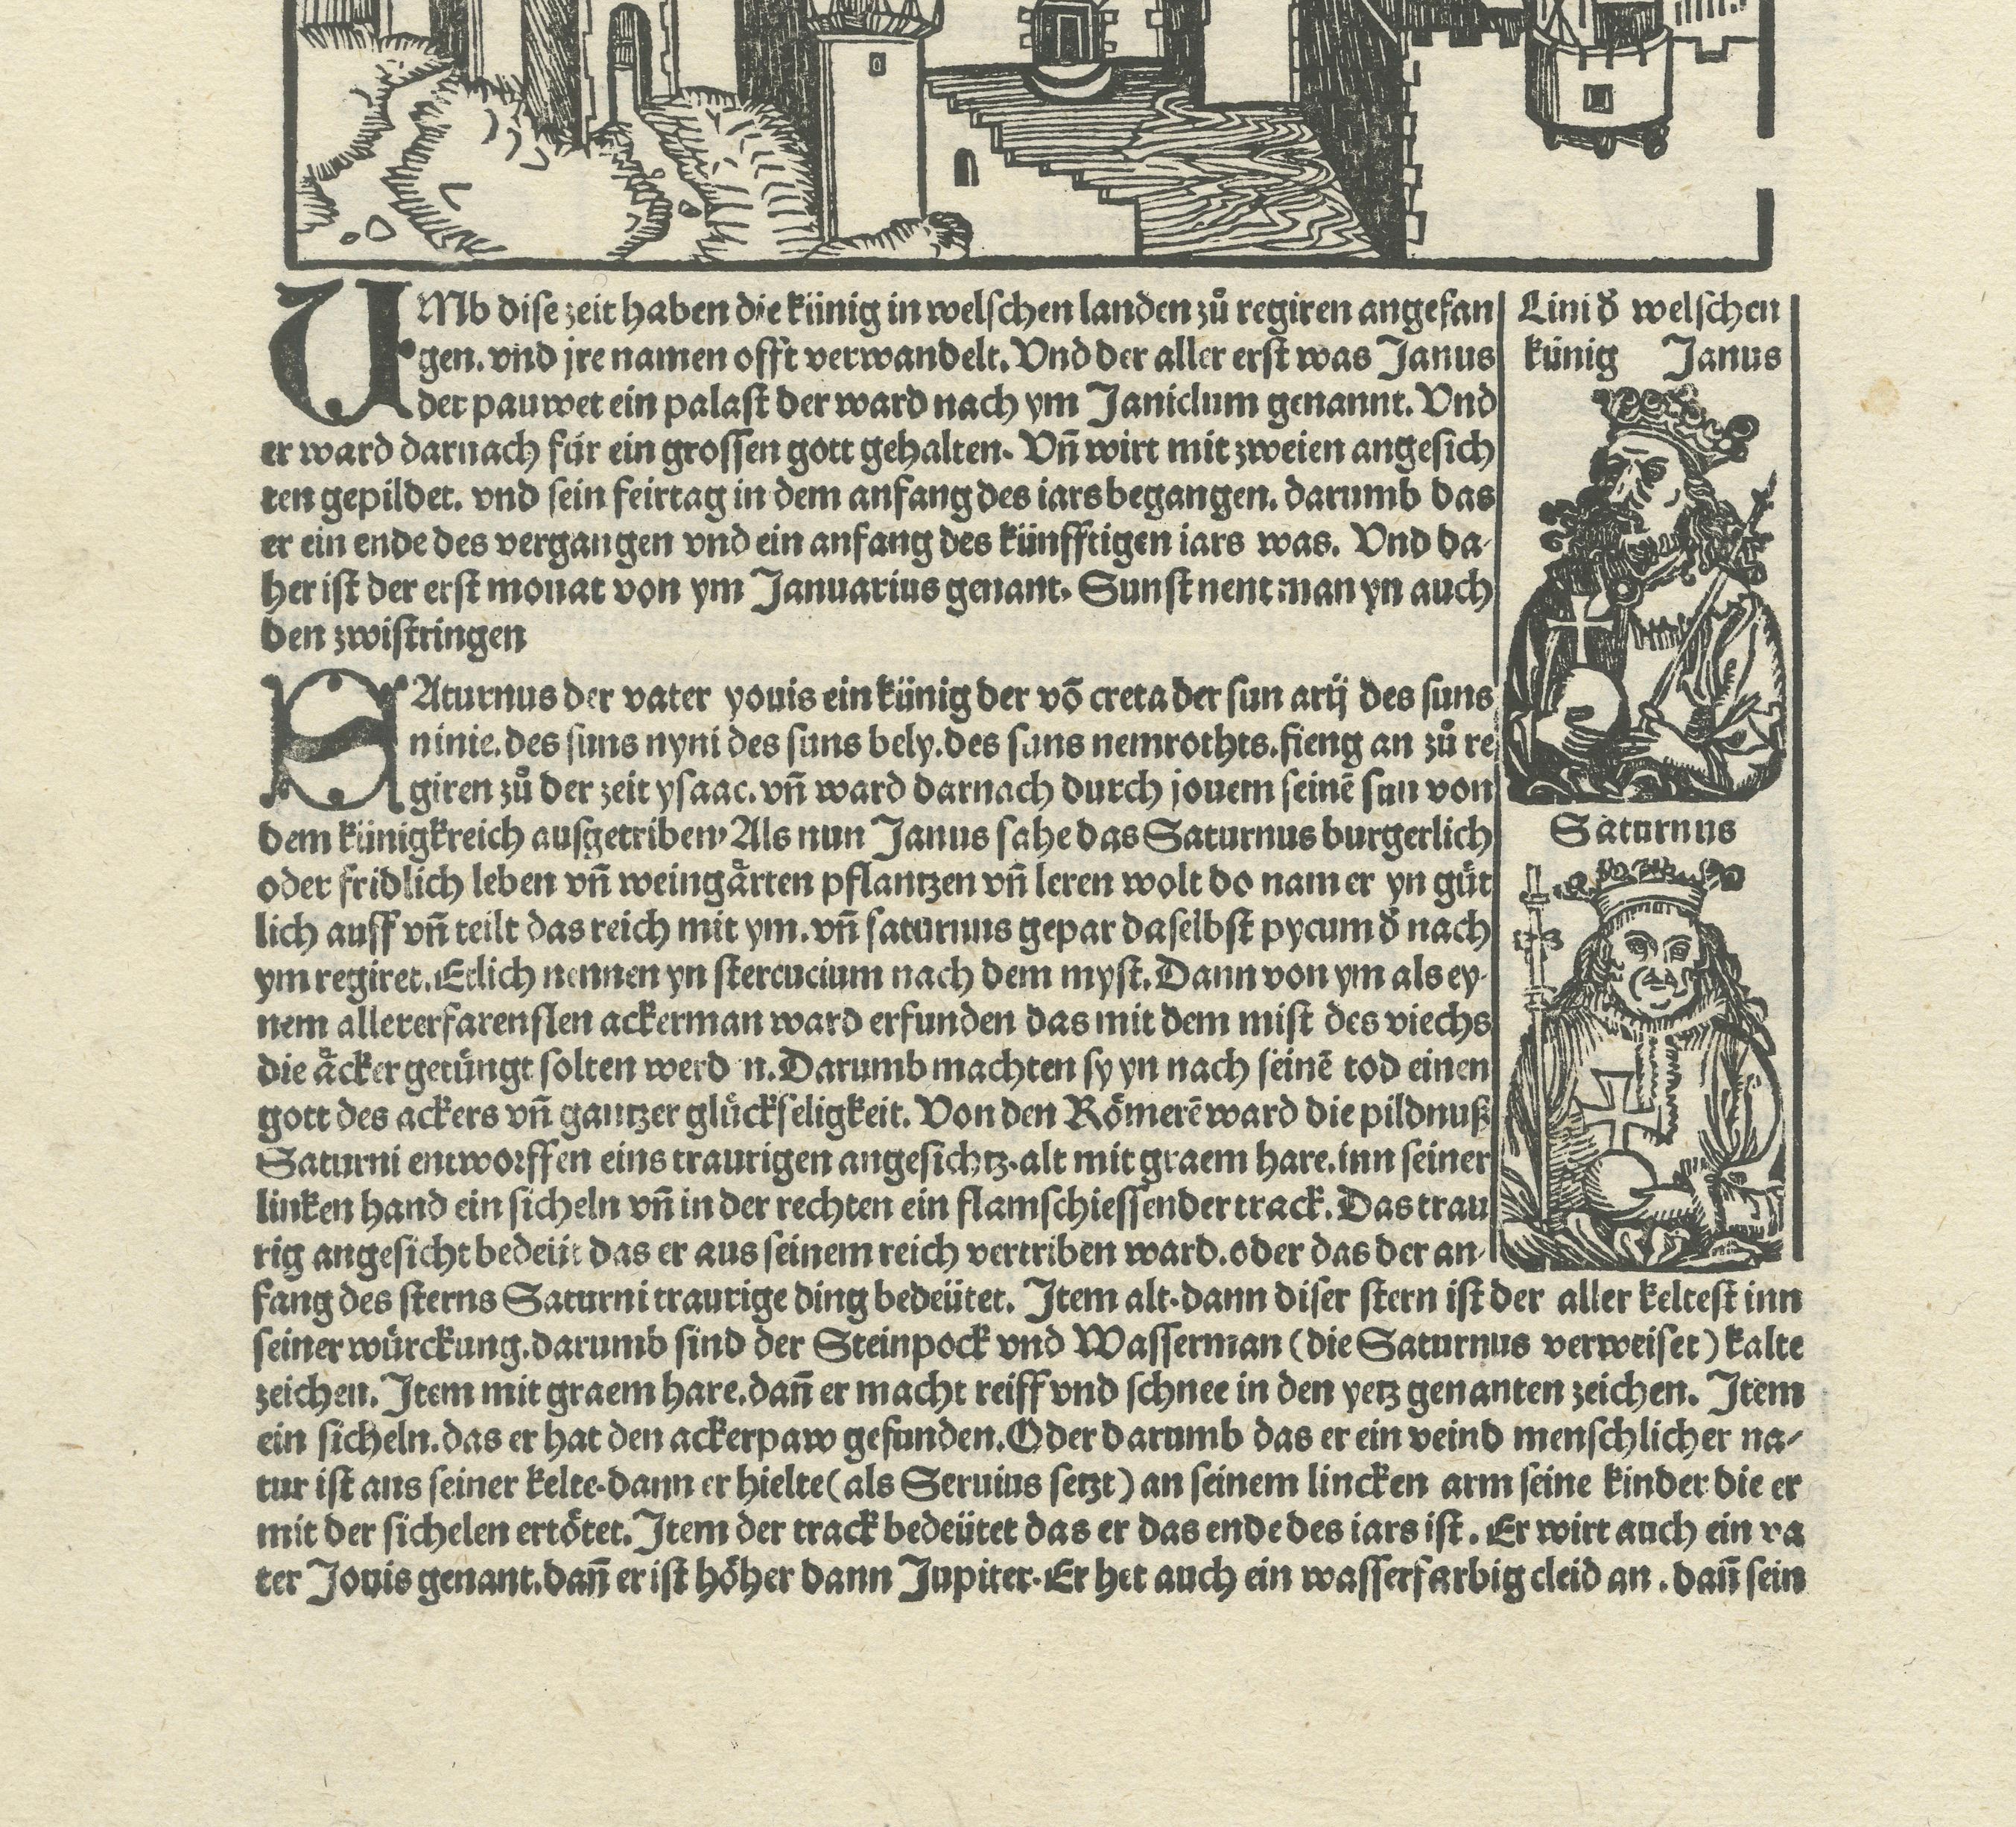 UMb dise zeit haben die künig in welschen landen zů regiren angefan
gen. vnd jre namen offt verwandelt. Vnd der aller erst was Janus
der pauwet ein palast der ward nach ym Janiclum genannt. Vnd
er ward darnach für ein grossen gott gehalten. Vn̄ wirt mit zweien angesich
ten gepildet. vnd sein feirtag in dem anfang des iars begangen. darumb das
er ein ende des vergangen vnd ein anfang des künfftigen iars was. Vnd da-
her ist der erst monat von ym Januarius genant. Sunst nent man yn auch
den zwistringen
SAturnus der vater youis ein künig der vō creta der sun arij des suns
ninie. des suns nyni des suns bely. des suns nemrothts. fieng an zů re
giren zů der zeit ysaac. vn̄ ward darnach durch jouem seinē sun von
dem künigkreich ausgetriben, Als nun Janus sahe das Saturnus burgerlich
oder fridlich leben vn̄ weingårten pflantzen vn̄ leren wolt do nam er yn güt
lich auff vn̄ teilt das reich mit ym. vn̄ saturnus gepar daselbst pycum d̄ nach
ym regiret. Etlich nennen yn stercucium nach dem myst. Dann von ym als ey-
nem allererfarensten ackerman ward erfunden das mit dem mist des viechs
die åcker getüngt solten werd n. Darumb machten sy yn nach seinē tod einen
gott des ackers vn̄ gantzer glückseligkeit. Von den Römerē ward die pildnuß
Saturni entworffen eins traurigen angesichtz. alt mit graem hare. inn seiner
linken hand ein sicheln vn̄ in der rechten ein flamschiessender track. Das trau
rig angesicht bedeüt das er aus seinem reich vertriben ward. oder das der an-
fang des sterns Saturni traurige ding bedeütet. Item alt. dann diser stern ist der aller keltest inn
seiner würckung. darumb sind der Steinpock vnd Wasserman (die Saturnus verweiset) kalte
zeichen. Item mit graem hare. dan̄ er macht reiff vnd schnee in den yetz genanten zeichen. Item
ein sicheln. das er hat den ackerpaw gefunden. Oder darumb das er ein veind menschlicher na-
tur ist aus seiner kelte. dann er hielte (als Seruius setzt) an seinem lincken arm seine kinder die er
mit der sichelen ertötet. Item der track bedeütet das er das ende des iars ist. Er wirt auch ein va
ter Jouis genant. dan̄ er ist höher dann Jupiter. Er het auch ein wasserfarbig cleid an. dan̄ sein
Lini d̄ welschen
künig Janus
Saturnus